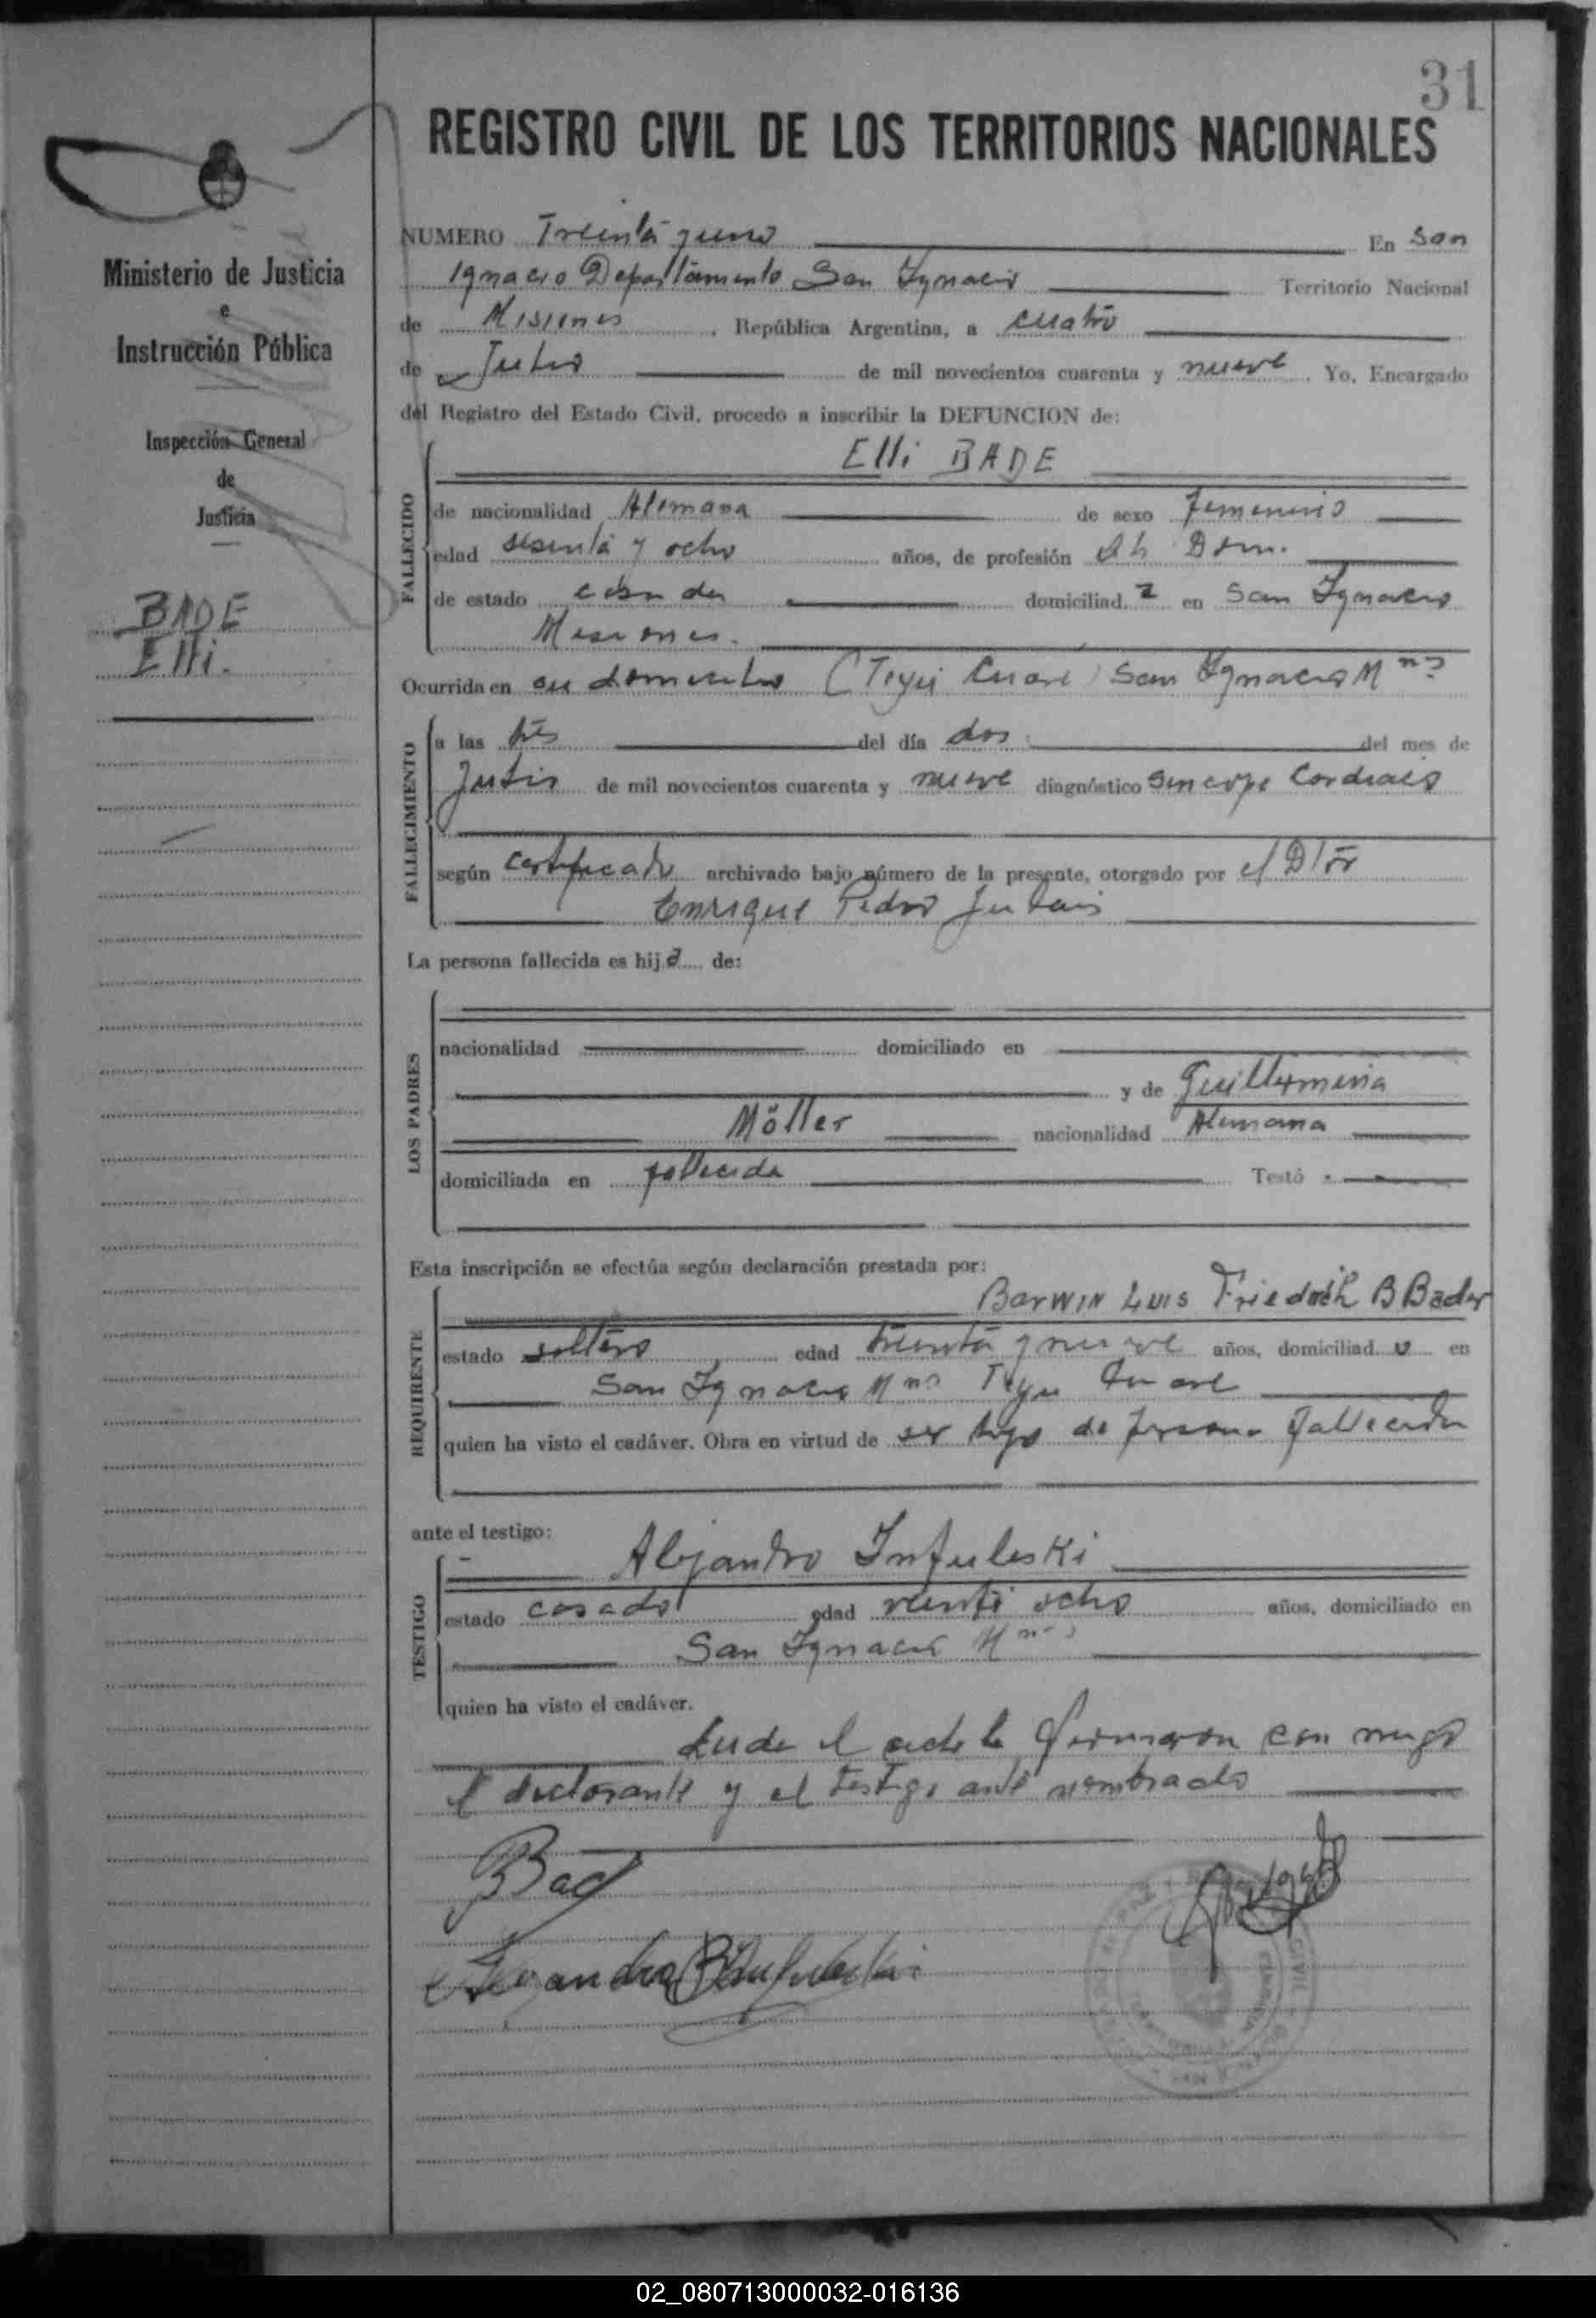 31
REGISTRO CIVIL DE LOS TERRITORIOS NACIONALES
Ministerio de Justicia
e
Instrucción Pública
Inspección General
de
Justicia
BADE
Elli.
NUMERO Treinta y uno En San
Ignacio Departamento San Ignacio Territorio Nacional
de Misiones, República Argentina, a cuatro
de Julio de mil novecientos cuarenta y nueve. Yo, Encargado
del Registro del Estado Civil, procedo a inscribir la DEFUNCION de:
Elli BADE
FALLECIDO
de nacionalidad Alemana de sexo femenino
edad sesenta y ocho años, de profesión Dom.
de estado casada domiciliad a en San Ignacio
Misiones.
Ocurrida en su domicilio (Teyú Cuaré) San Ignacio Mnes
FALLECIMIENTO
a las tres del día dos del mes de
Julio de mil novecientos cuarenta y nueve diagnóstico Sincope Cardiaco
según certificado archivado bajo número de la presente, otorgado por el
Enrique Pedro
La persona fallecida es hij a de:
LOS PADRES
nacionalidad domiciliado en
y de Guillermina
Möller nacionalidad Alemana
domiciliada en fallecida Testó
Esta inscripción se efectúa según declaración prestada por:
REQUIRENTE
Barwin Luis Friedrich B
estado soltero edad treinta y nueve años, domiciliad o en
San Ignacio Mnes Teyu Cuare
quien ha visto el cadáver. Obra en virtud de ser hijo de persona fallecida
ante el testigo:
TESTIGO
Alejandro Infuleski
estado casado edad veinti ocho años, domiciliado en
San Ignacio Mnes
quien ha visto el cadáver.
el acta la firmaron con migo
el declarante y el testigo ante nombrado
02_080713000032-016136